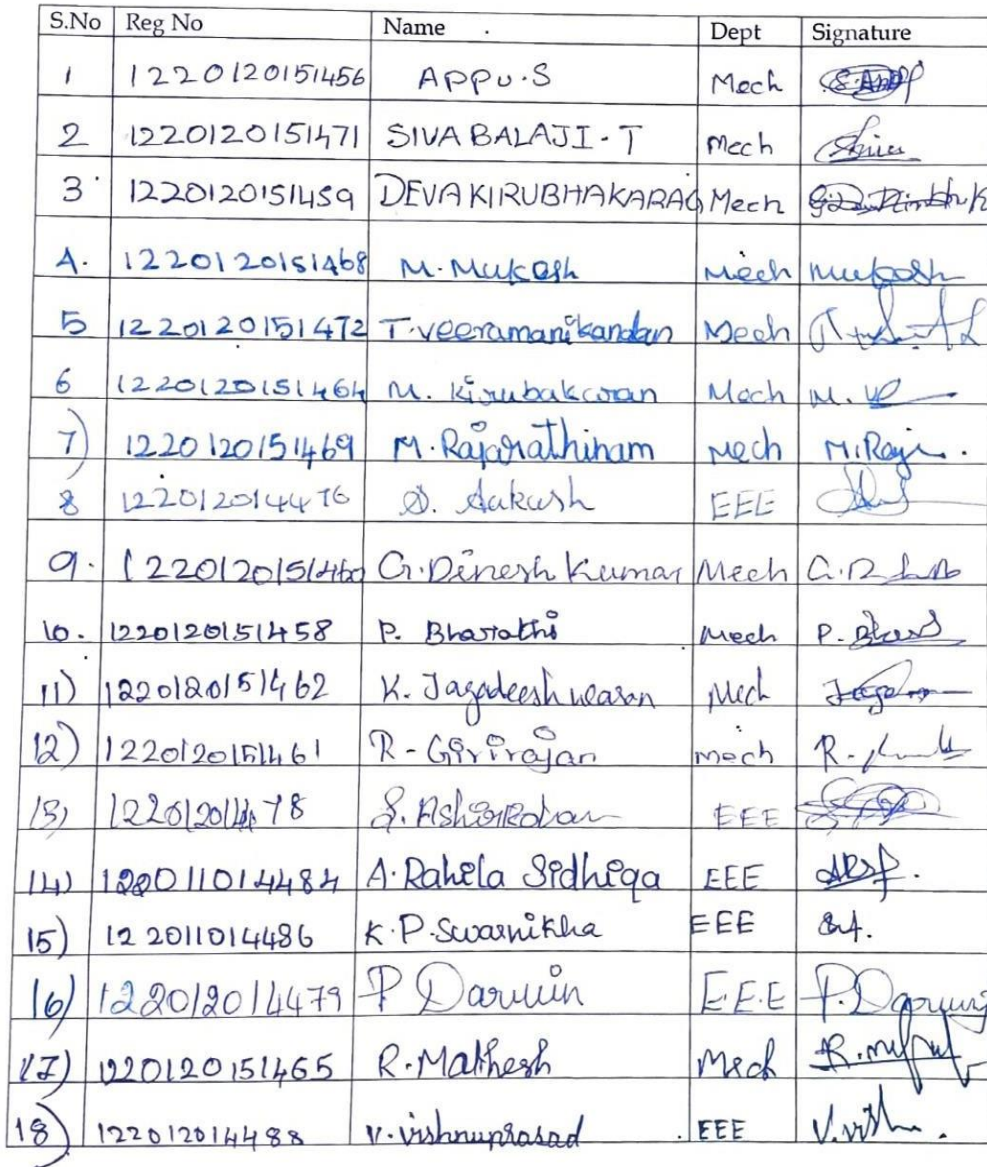 S.No Reg No Name . Dept Signature
1 1220120151456 APPU.S Mech S.App
2 1220120151471 SIVA BALAJI - T Mech
3 1220120151459 DEVAKIRUBHAKARAG Mech
4. 1220120151468 M. Mukesh Mech Mukesh
5 1220120151472 T. Veeramanikandan Mech
6 1220120151464 M. Kirubakaran Mech M.
7) 1220120151469 M. Rajarathinam Mech M. Raja.
8 122012014476 S. Aakash EEE
9. 1220120151460 G. Dinesh Kumar Mech
10. 1220120151458 P. Bharathi Mech P.
11) 1220120151462 K. Jagadeeshwaran Mech
12) 1220120151461 R - Girirajan Mech R.
13) 122012014478 EEE
14) 122011014484 A. Rahela Sidhiqa EEE
15) 122011014486 K.P. Swarnikha EEE
16) 122012014479 P Darwin E.E.E P. Darwin
17) 1220120151465 R. Mathesh Mech
18) 122012014488 V. Vishnuprasad . EEE